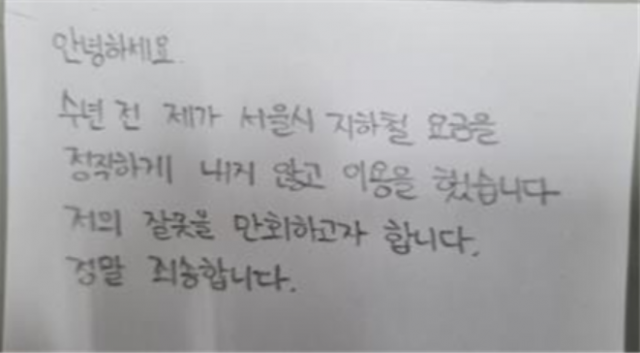 안녕하세요.
수년 전 제가 서울시 지하철 요금을
정작하게 내지 않고 이용을 했습니다
저의 잘못을 만회하고자 합니다.
정말 죄송합니다.